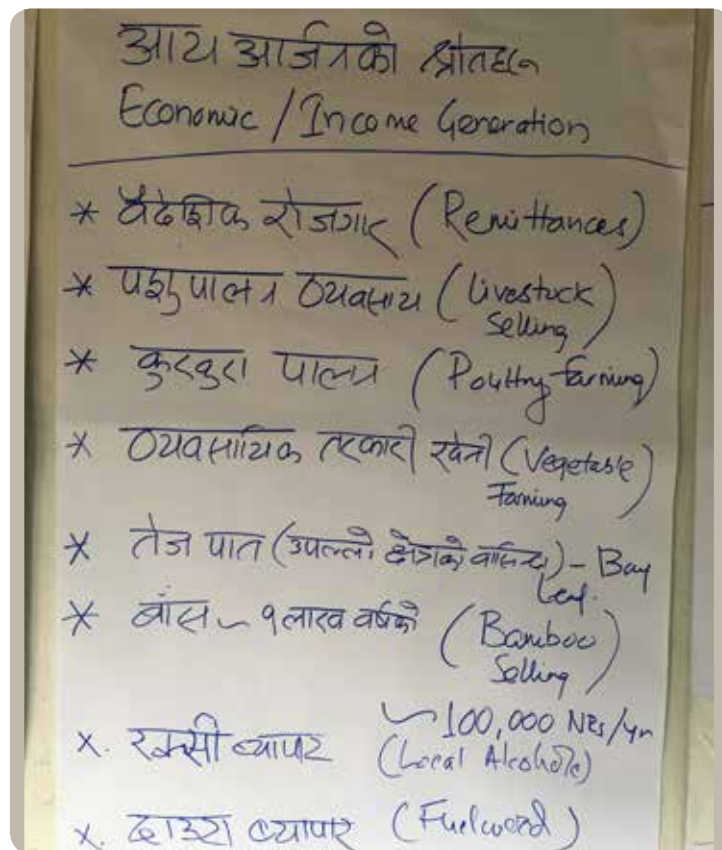 आय आर्जनको श्रोतहरु
Economic / Income Generation
* वैदेशिक रोजगार (Remittances)
* पशुपालन व्यवसाय (Livestock
Selling)
* कुखुरा पालन (Poultry farming)
* व्यवसायिक तरकारी खेती (Vegetable
Farming)
* तेज पात (उपल्लो क्षेत्रको वासिन्दा) – Bay
Leaf.
* बांस ~ १ लाख वर्षको (Bamboo
Selling)
~ 100,000 NRs/yr
x. रक्सी व्यापार (Local Alcohole)
x. दाउरा व्यापार (Fuelwood)